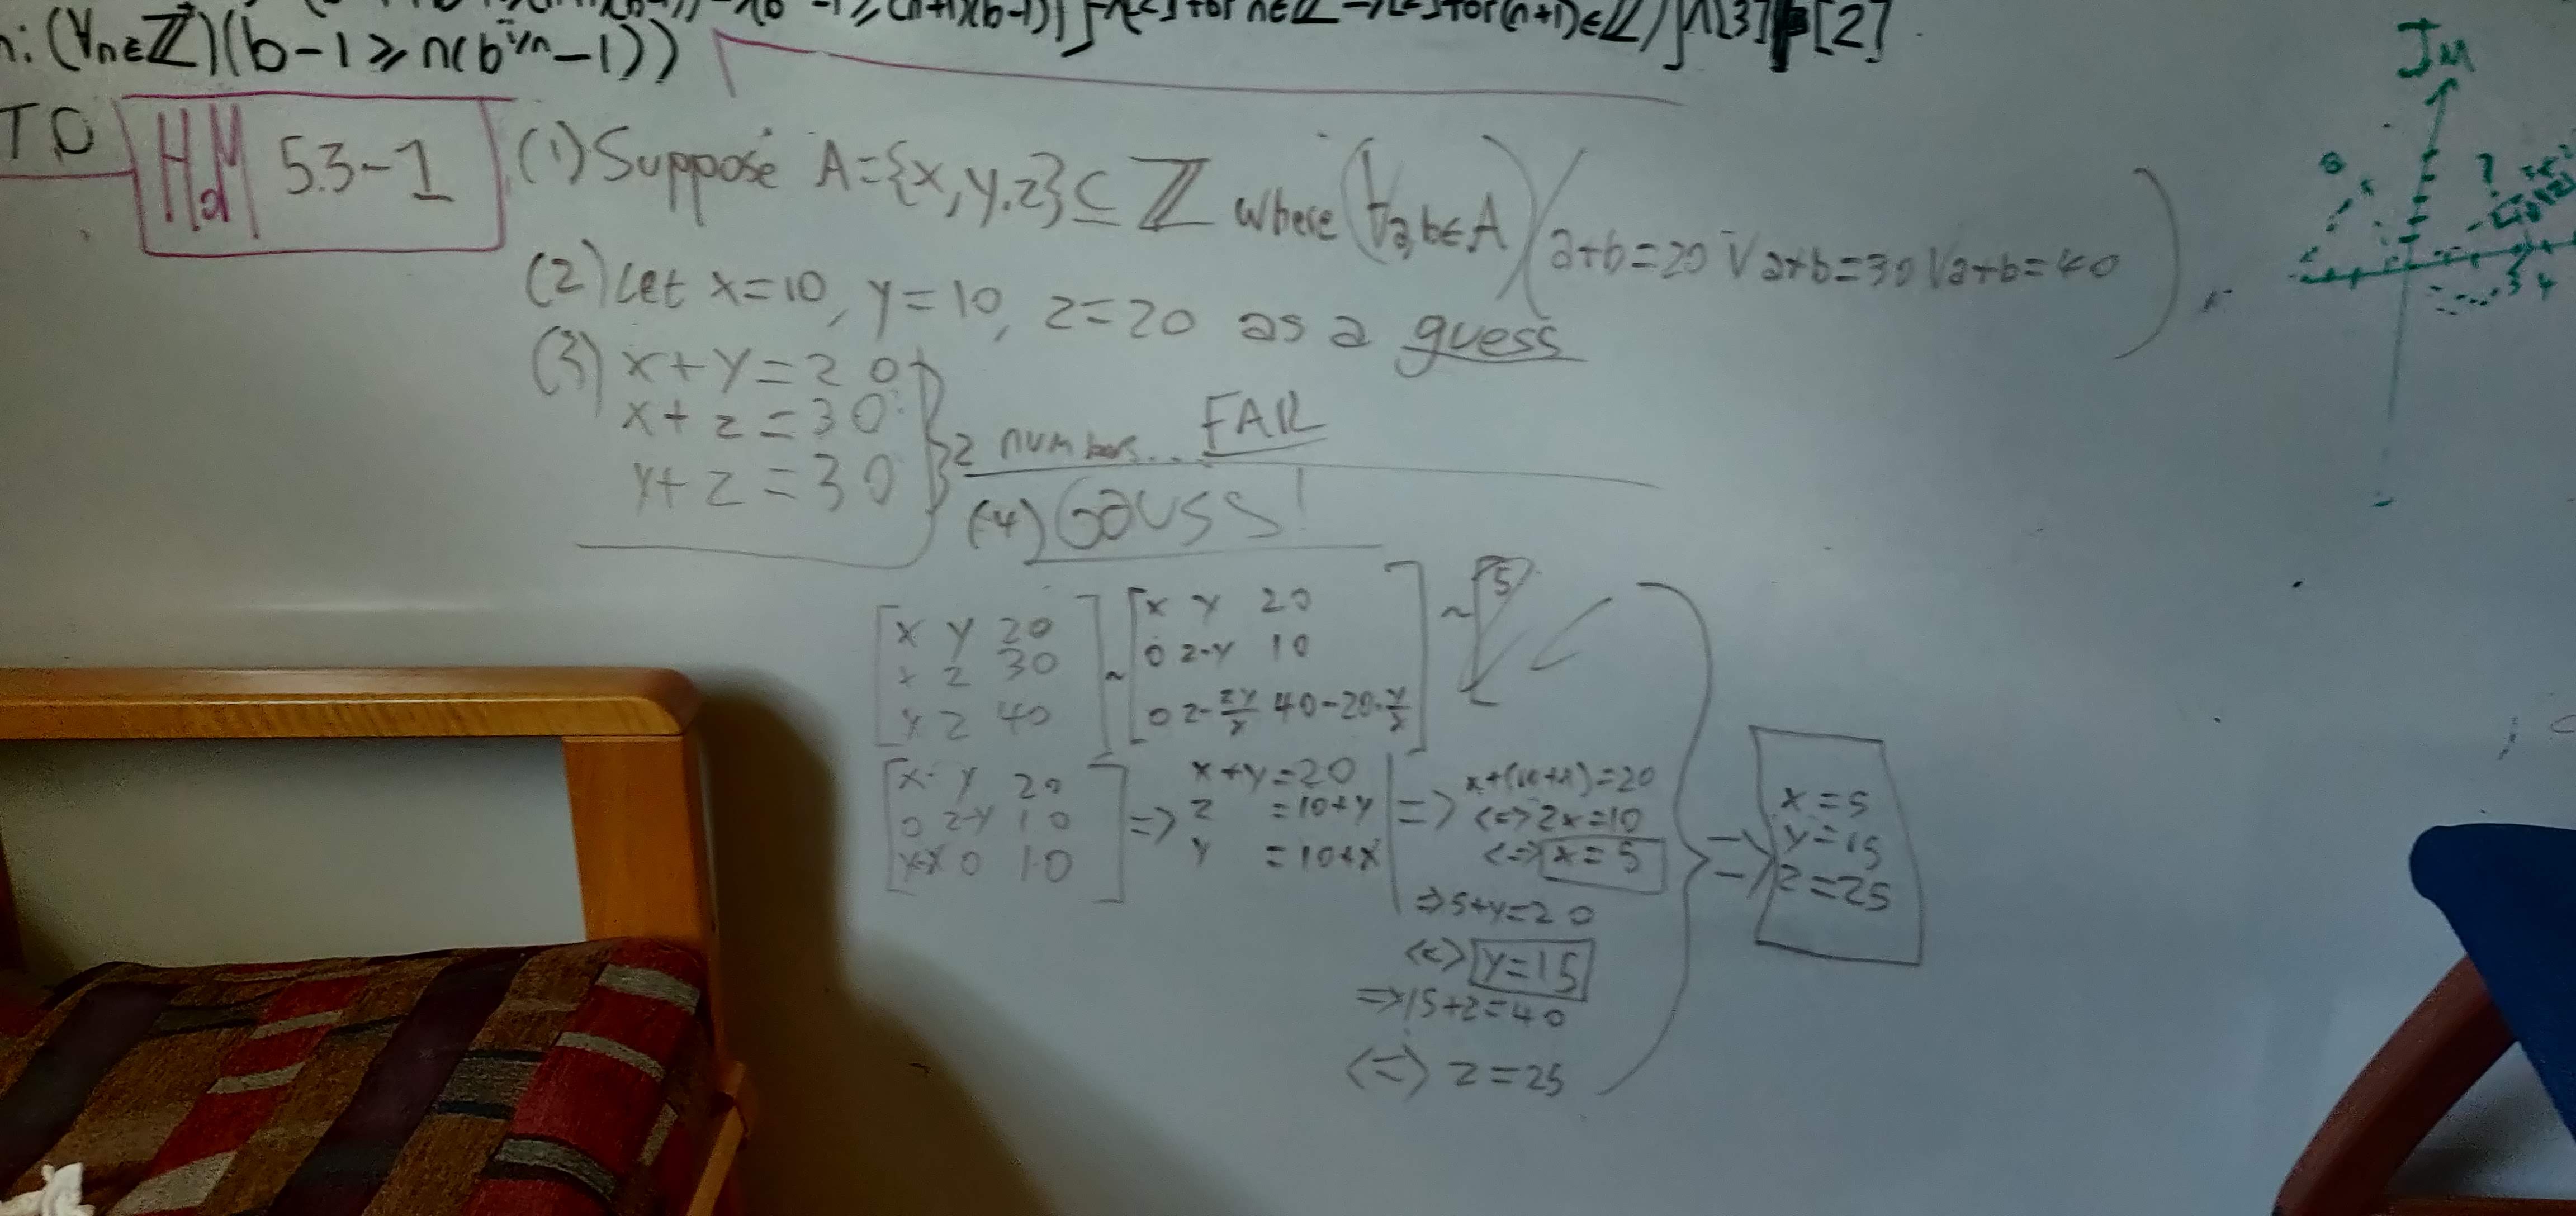 n: (∀n∈ℤ)(b-1≥n(b^{1/n}-1))
-1≥(n+1)(b-1))] for n∈ℤ → for(n+1)∈ℤ)]∧[3] [2].
TO
HdM 5.3-1
(1) Suppose A={x,y,z}⊆ℤ where (∀a,b∈A)(a+b=20 ∨ a+b=30 ∨ a+b=40).
(2) Let x=10, y=10, z=20 as a guess
(3) x+y=20
x+z=30
y+z=30
2 numbers... FAIL
(4) GaUSS!
[x y 20
x z 30
y z 40]
~
[x y 20
0 z-y 10
0 z-zy/x 40-20·y/x]
~[5
[x y 20
0 z-y 10
y-x 0 10]
=> x+y=20
z =10+y
y =10+x
=> x+(10+x)=20
<=> 2x=10
<=> x=5
=> 5+y=20
<=> y=15
=> 15+z=40
<=> z=25
=>
x=5
y=15
z=25
JM
?
3 4